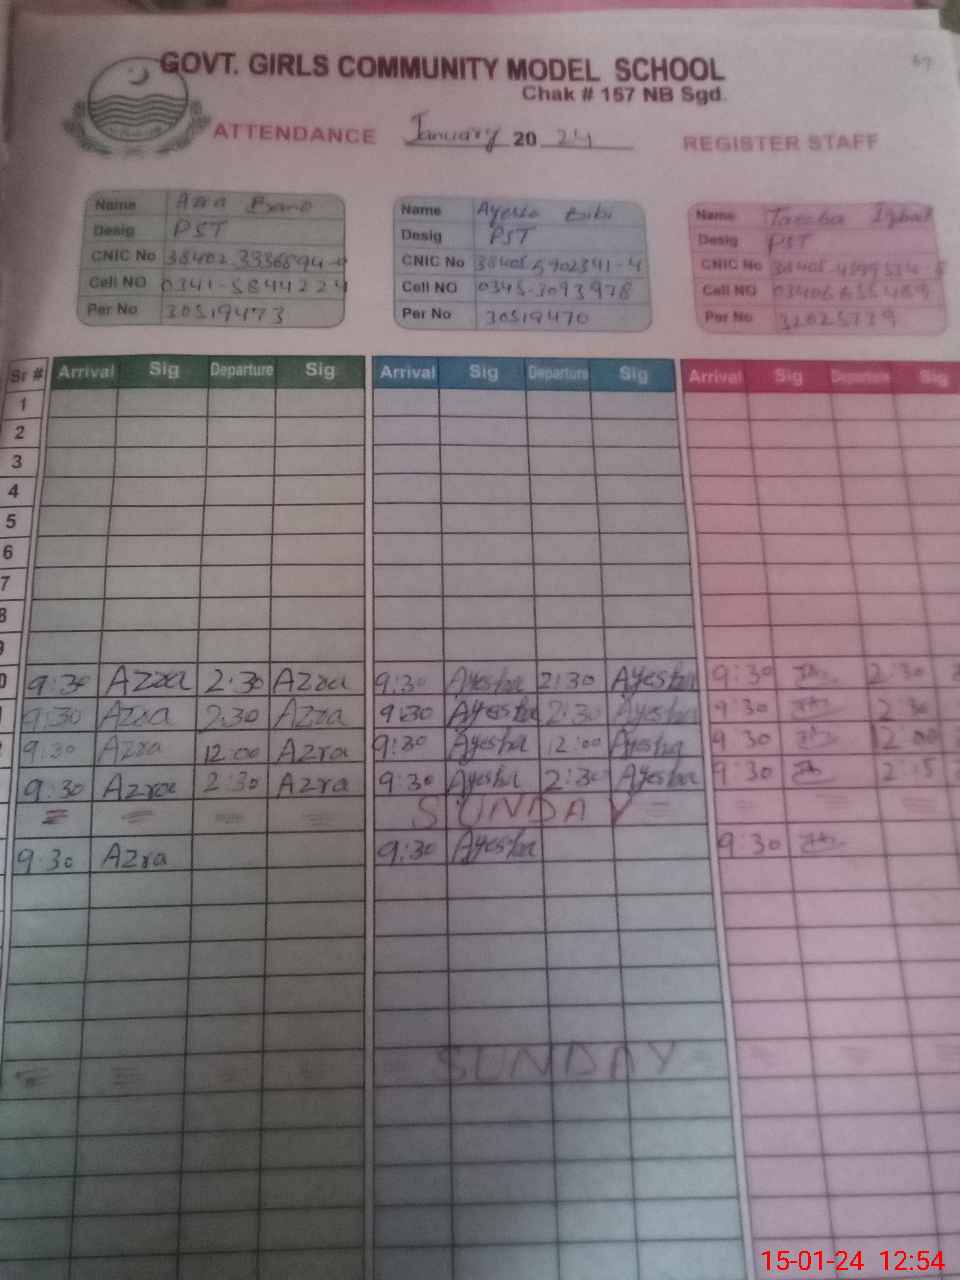 GOVT. GIRLS COMMUNITY MODEL SCHOOL
Chak # 157 NB Sgd.
ATTENDANCE January 20 24 REGISTER STAFF
Name Azra Bano Name Ayesha Bibi Name Iqbal
Desig PST Desig PST Desig PST
CNIC No CNIC No CNIC No
Cell NO 0341-5844224 Cell NO 0345-3093978 Cell NO
Per No 30519473 Per No 30519470 Per No
Sr # Arrival Sig Departure Sig Arrival Sig Departure Sig Arrival Sig Departure Sig
1
2
3
4
5
6
7
8
9
0 9:30 Azra 2:30 Azra 9:30 Ayesha 2:30 Ayesha 9:30 2:30
9:30 Azra 2:30 Azra 9:30 Ayesha 2:30 Ayesha 9:30 2:30
9:30 Azra 12:00 Azra 9:30 Ayesha 12:00 Ayesha 9:30 12:00
9:30 Azra 2:30 Azra 9:30 Ayesha 2:30 Ayesha 9:30 2:15
SUNDAY
9:30 Azra 9:30 Ayesha 9:30
SUNDAY
15-01-24 12:54